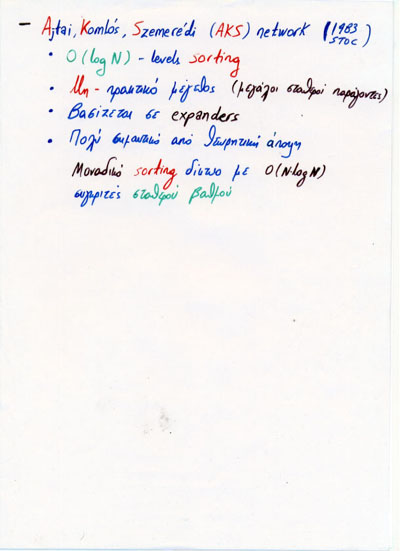 - Ajtai, Komlós, Szemerédi (AKS) network (1983 STOC)
• O(log N) - levels sorting
• Μη - πρακτικό μέγεθος (μεγάλοι σταθεροί παράγοντες)
• Βασίζεται σε expanders
• Πολύ σημαντικό από θεωρητική άποψη
Μοναδικό sorting δίκτυο με O(N·log N)
συγκριτές σταθερού βαθμού